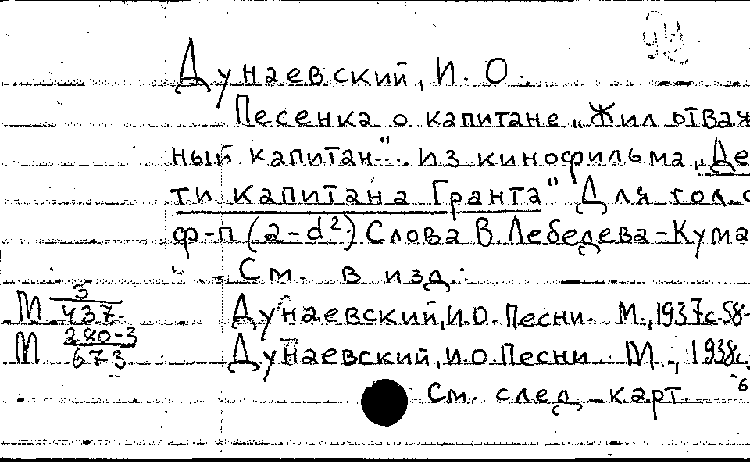 Дунаевский, И. О.
Песенка о капитане „Жил отваж
ный капитан". из кинофильма „Де
ти капитана Гранта" Для гол. с
ф-п (a-d²) Слова В. Лебедева-Кума
См. в изд.
М 3/437 Дунаевский, И.О. Песни. М., 1937 с 58-
М 280-3/673 Дунаевский, И.О. Песни. М., 1938 с.
См. след. карт.